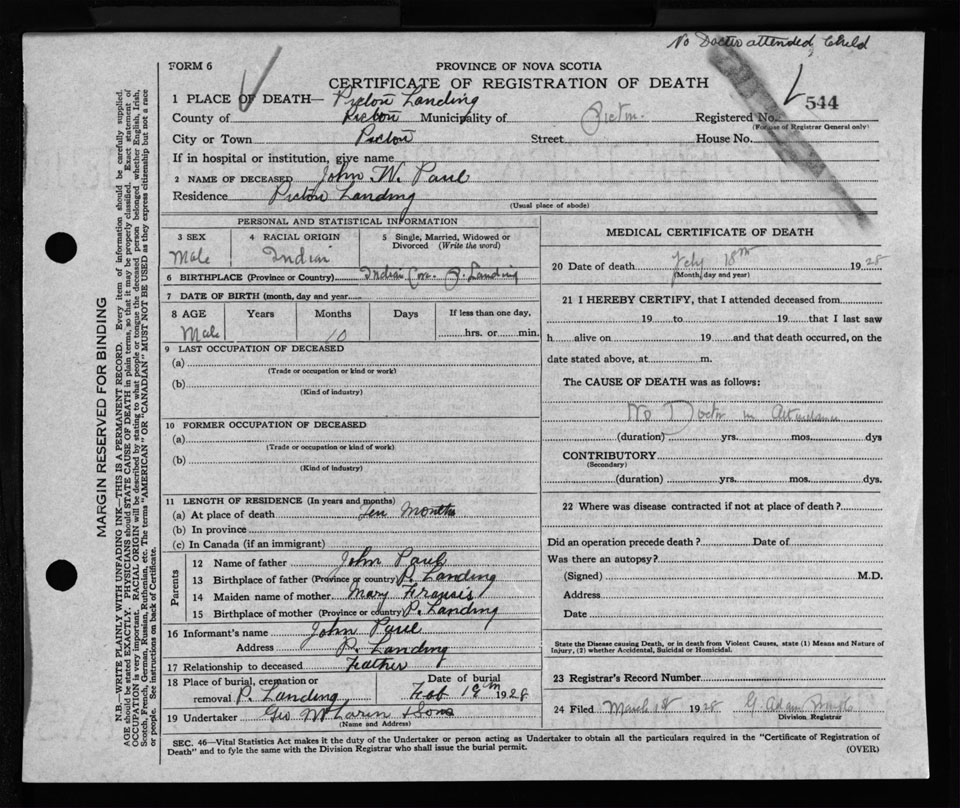 No Doctor attended, Child
FORM 6
PROVINCE OF NOVA SCOTIA
CERTIFICATE OF REGISTRATION OF DEATH
544
1 PLACE OF DEATH— Pictou Landing
County of Pictou Municipality of Pictou Registered No.
(For use of Registrar General only)
City or Town Pictou Street House No.
If in hospital or institution, give name
2 NAME OF DECEASED John W. Paul
Residence Pictou Landing
(Usual place of abode)
PERSONAL AND STATISTICAL INFORMATION
3 SEX 4 RACIAL ORIGIN 5 Single, Married, Widowed or Divorced (Write the word)
Male Indian
6 BIRTHPLACE (Province or Country) Indian P. Landing
7 DATE OF BIRTH (month, day and year)
8 AGE Years Months Days If less than one day,
Male 10 hrs. or min.
9 LAST OCCUPATION OF DECEASED
(a)
(Trade or occupation or kind or work)
(b)
(Kind of industry)
10 FORMER OCCUPATION OF DECEASED
(a)
(Trade or occupation or kind of work)
(b)
(Kind of industry)
11 LENGTH OF RESIDENCE (In years and months)
(a) At place of death Ten Months
(b) In province
(c) In Canada (if an immigrant)
Parents
12 Name of father John Paul
13 Birthplace of father (Province or country) P. Landing
14 Maiden name of mother Mary Francis
15 Birthplace of mother (Province or country) P. Landing
16 Informant's name John Paul
Address P. Landing
17 Relationship to deceased Father
18 Place of burial, cremation or Date of burial
removal P. Landing Feb 19th 1928
19 Undertaker Geo McLaren & Sons
(Name and Address)
MEDICAL CERTIFICATE OF DEATH
20 Date of death Feby 18th 1928
(Month, day and year)
21 I HEREBY CERTIFY, that I attended deceased from
19 to 19 that I last saw
h alive on 19 and that death occurred, on the
date stated above, at m.
The CAUSE OF DEATH was as follows:
No Doctor in Attendance
(duration) yrs. mos. dys
CONTRIBUTORY
(Secondary)
(duration) yrs. mos. dys.
22 Where was disease contracted if not at place of death?
Did an operation precede death? Date of
Was there an autopsy?
(Signed) M.D.
Address
Date
State the Disease causing Death, or in death from Violent Causes, state (1) Means and Nature of
Injury, (2) whether Accidental, Suicidal or Homicidal.
23 Registrar's Record Number
24 Filed March 1st 1928 G. Adam
Division Registrar
SEC. 46—Vital Statistics Act makes it the duty of the Undertaker or person acting as Undertaker to obtain all the particulars required in the "Certificate of Registration of
Death" and to fyle the same with the Division Registrar who shall issue the burial permit.
(OVER)
MARGIN RESERVED FOR BINDING
N.B.—WRITE PLAINLY WITH UNFADING INK—THIS IS A PERMANENT RECORD. Every item of information should be carefully supplied.
AGE should be stated EXACTLY. PHYSICIANS should STATE CAUSE OF DEATH in plain terms, so that it may be properly classified. Exact statement of
OCCUPATION is very important. RACIAL ORIGIN will be described by stating to what people or tongue the deceased person belonged whether English, Irish,
Scotch, French, German, Russian, Ruthenian, etc. The terms "AMERICAN" OR "CANADIAN" MUST NOT BE USED as they express citizenship but not a race
or people. See instructions on back of Certificate.